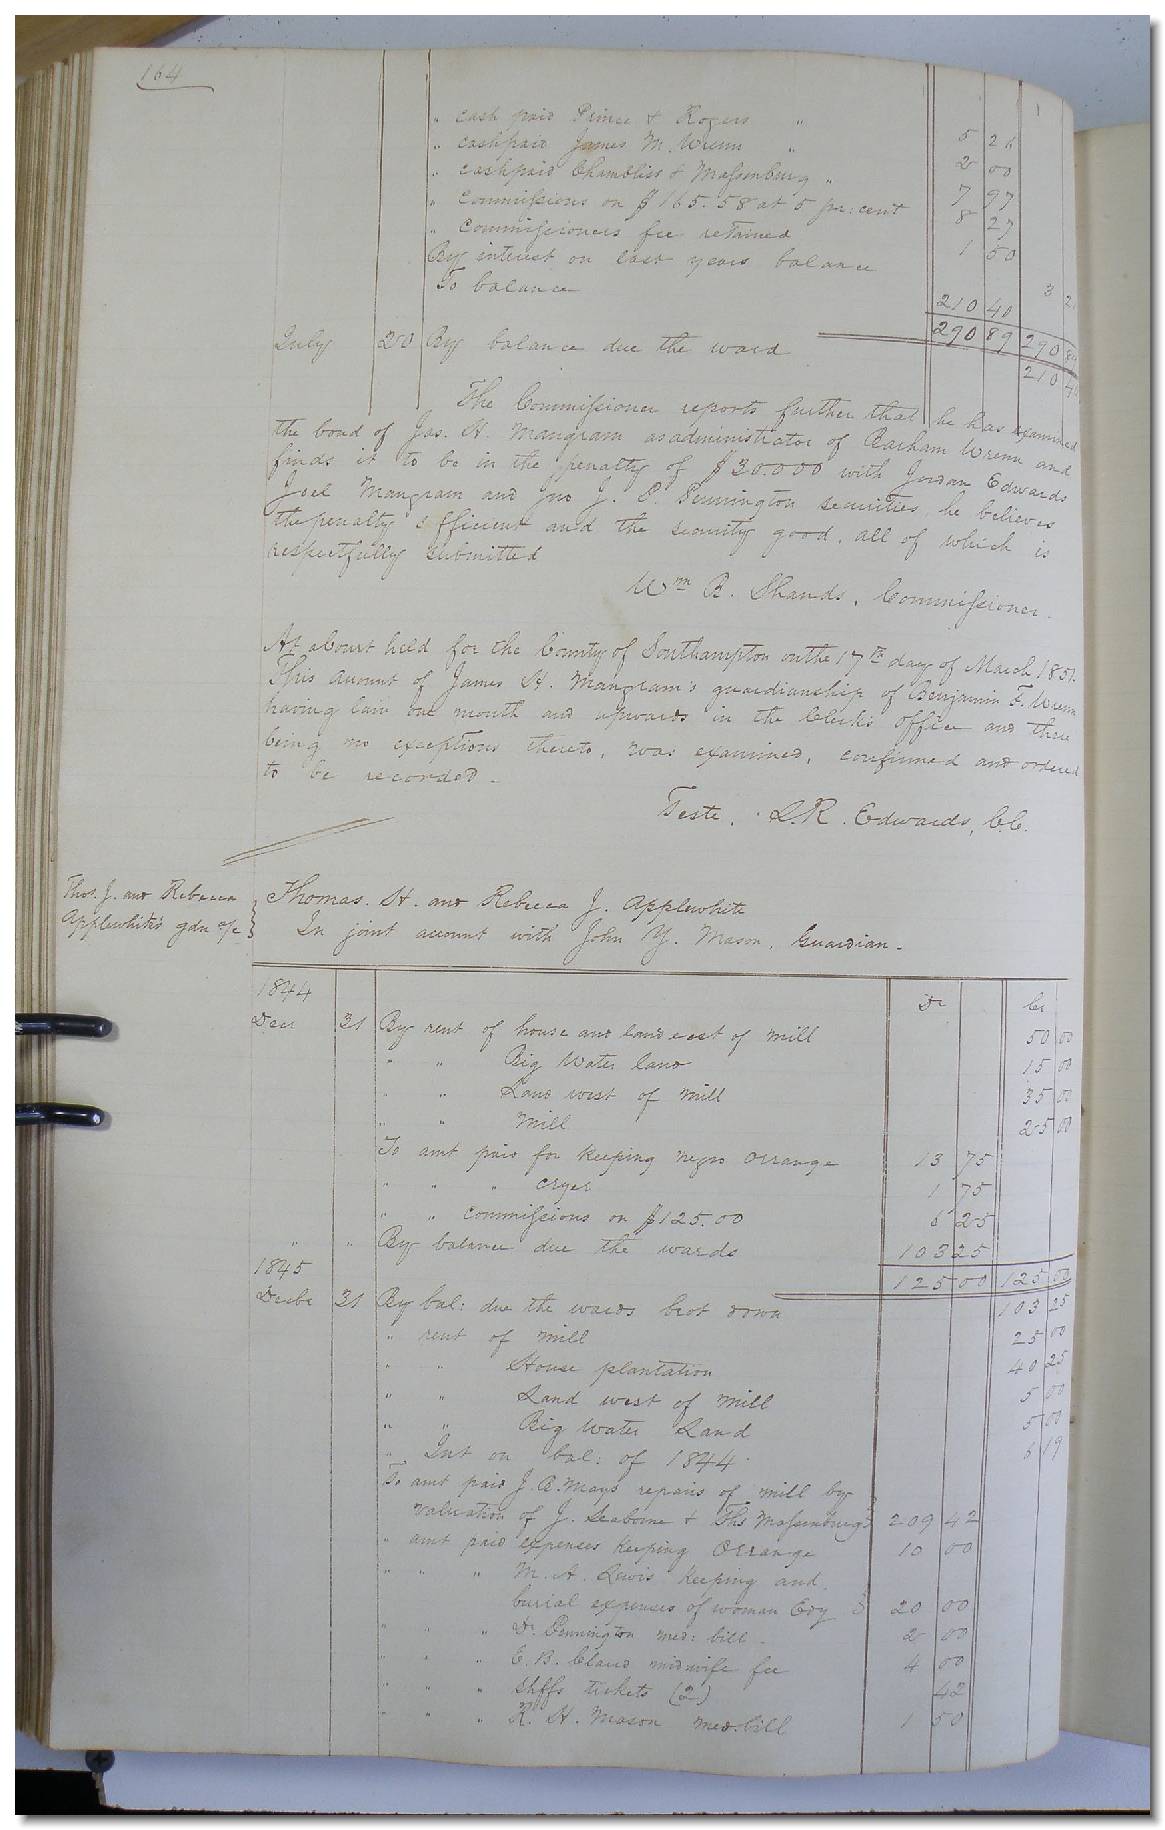 164
" cash paid Prince & Rogers " 5 26
" cash paid James M. Wrenn " 2 00
" cash paid Chambliss & Massenburg " 7 97
" Commissions on $165.58 at 5 pr: cent 8 27
" Commissioners fee retained 1 50
By interest on last years balance 3 2
To balance 210 40
290 89 290 89
July 20 By balance due the ward 210 40
The Commissioner reports further that he has examined
the bond of Jas. H. Mangram as administrator of Barham Wrenn and
finds it to be in the penalty of $30.000 with Jordan Edwards
Joel Mangram and Jno J. S. Pennington securities, he believes
the penalty sufficient and the security good. all of which is
respectfully submitted
Wm B. Shands, Commissioner.
At a Court held for the County of Southampton on the 17th day of March 1851.
This account of James H. Mangram's guardianship of Benjamin F. Wrenn
having lain one month and upwards in the Clerk's office and there
being no exceptions thereto, was examined, confirmed and ordered
to be recorded.
Teste, L. R. Edwards, C.C.
Thos. J. and Rebecca
Applewhite's gdn a/c
Thomas. H. and Rebecca J. Applewhite
In joint account with John Y. Mason, Guardian.
1844 Dr Cr
Decr 31 By rent of house and land east of mill 50 00
" " Big Water land 15 00
" " Land west of mill 35 00
" " Mill 25 00
To amt paid for keeping negro Orrange 13 75
" " " cryer 1 75
" " commissions on $125.00 6 25
" " By balance due the wards 103 25
1845 125 00 125 00
Decbr 31 By bal: due the wards brot down 103 25
" rent of mill 25 00
" " House plantation 40 25
" " Land west of mill 5 00
" " Big Water Land 5 00
" Int on bal: of 1844 6 19
To amt paid J. A. Mays repairs of mill by
valuation of J. Seaborne & Ths Massenburg 209 42
" amt paid expences keeping Orrange 10 00
" " " M. A. Lewis keeping and
burial expences of woman Edy 20 00
" " " Dr. Pennington med: bill 2 00
" " " E. B. Claud midwife fee 4 00
" " " Shffs tickets (2) 42
" " " R. H. Mason med. bill 1 50